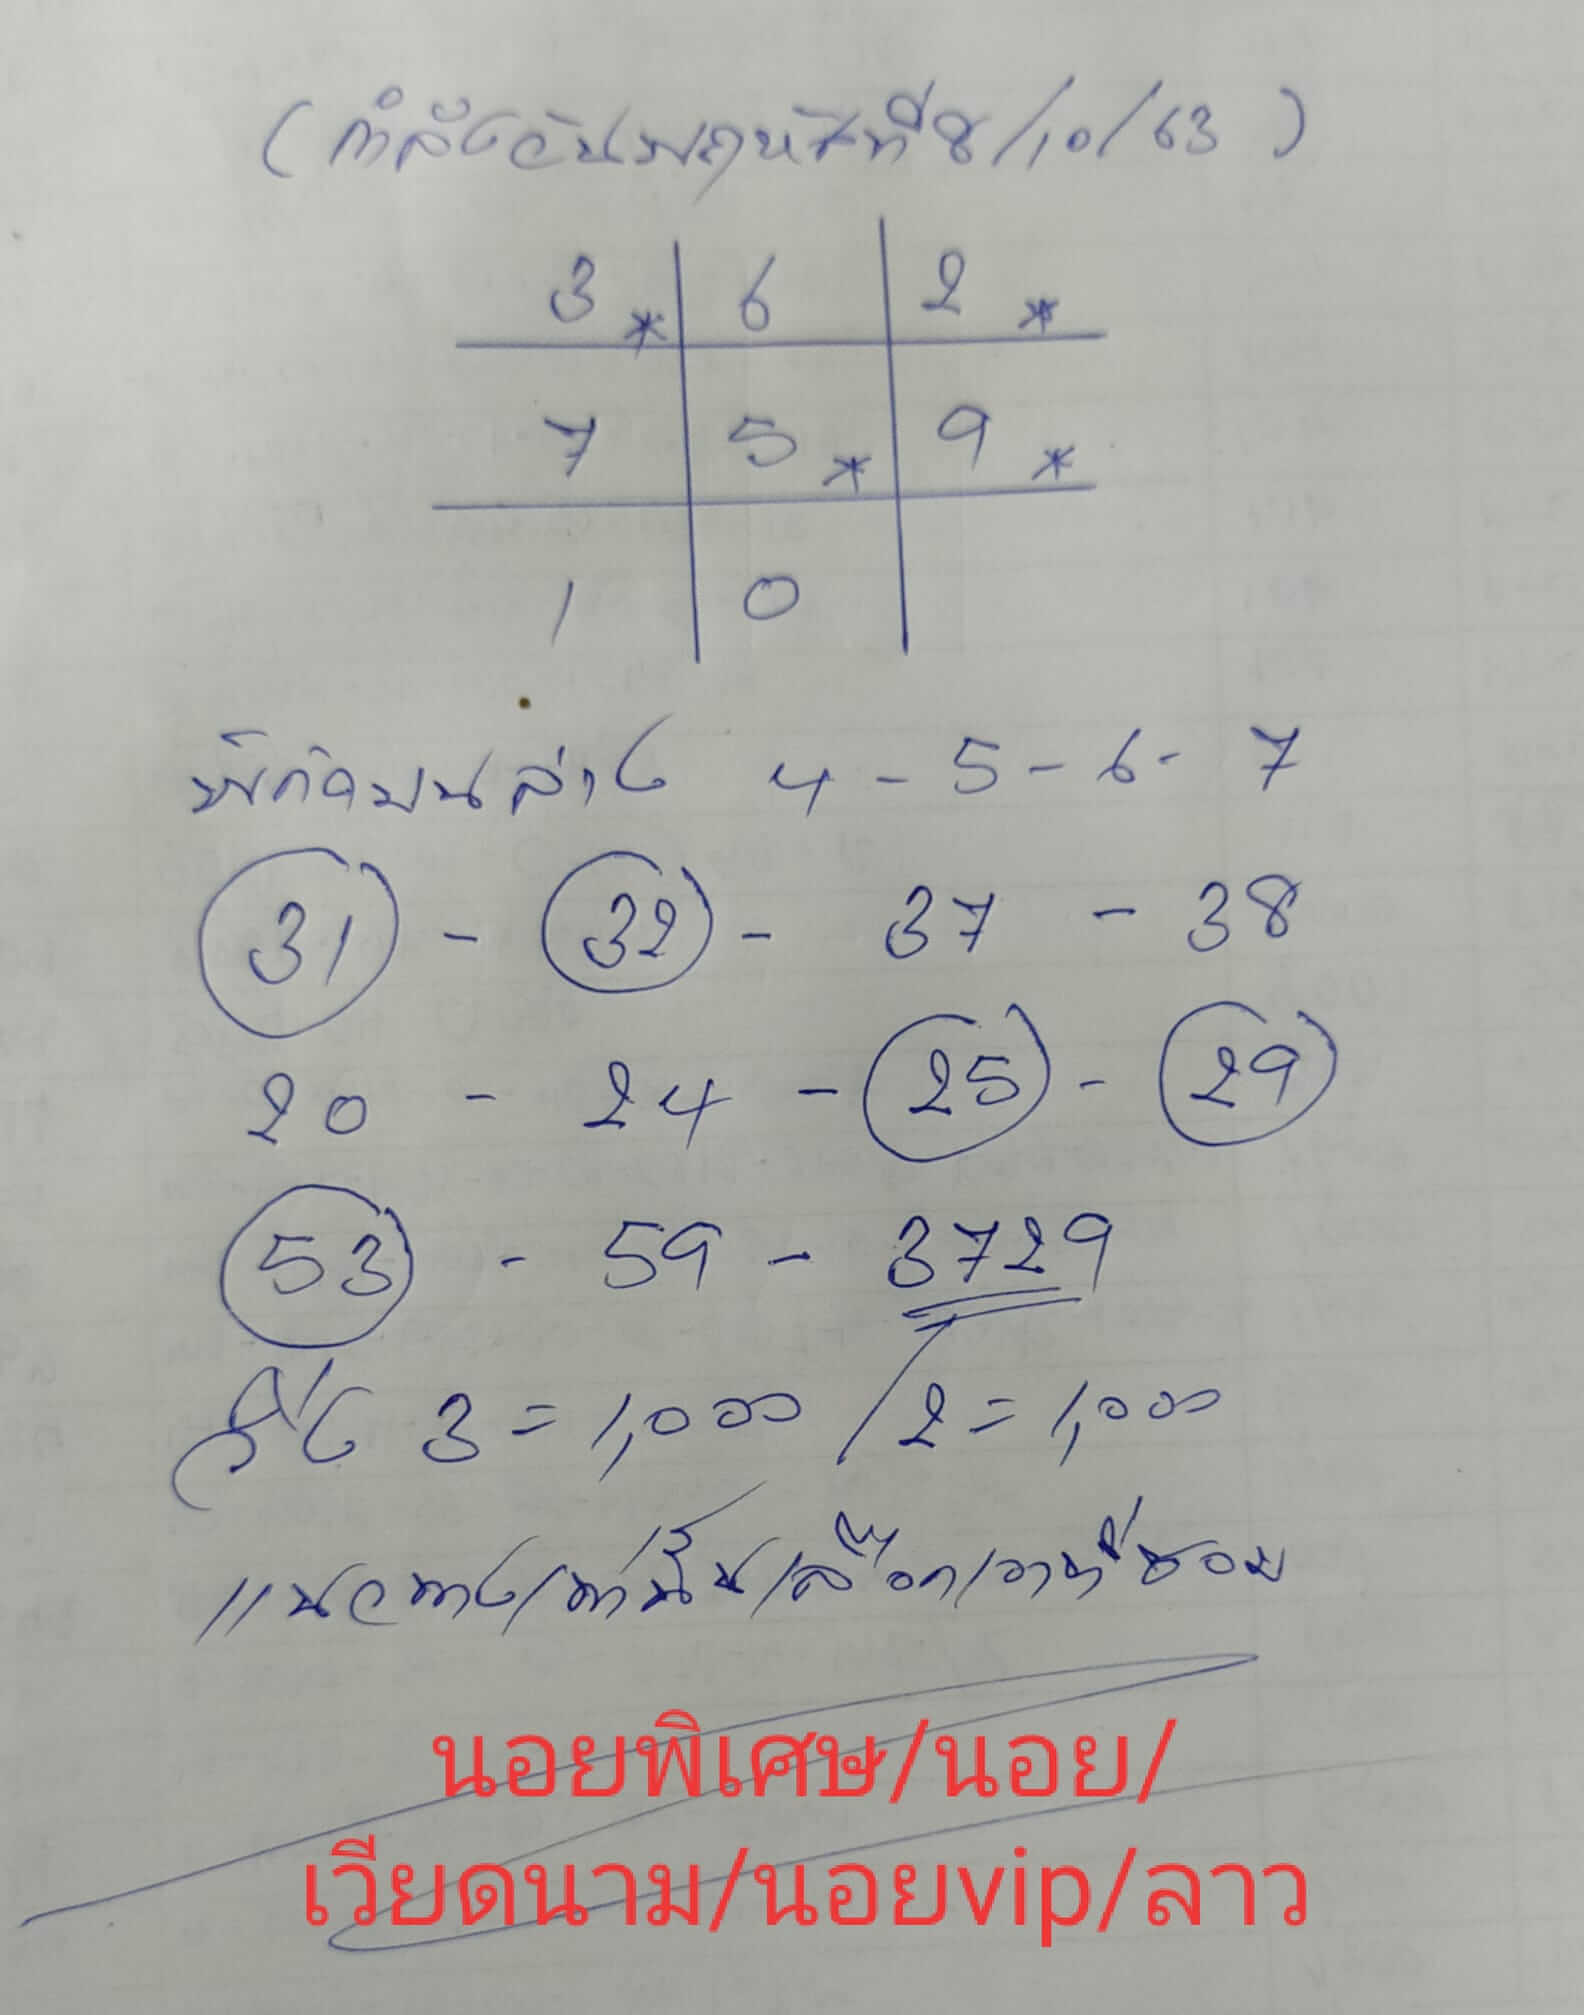 (กำลังวันพฤหัสที่8/10/63)
3* 6 2*
7 5* 9*
1 0
พิกัดบนล่าง 4-5-6-7
31 - 32 - 37 - 38
20 - 24 - 25 - 29
53 - 59 - 3729
วิ่ง 3=1,000/2=1,000
แนวทาง/เท่านั้น/เลือก/อาที่ชอบ
นอยพิเศษ/นอย/
เวียดนาม/นอยvip/ลาว